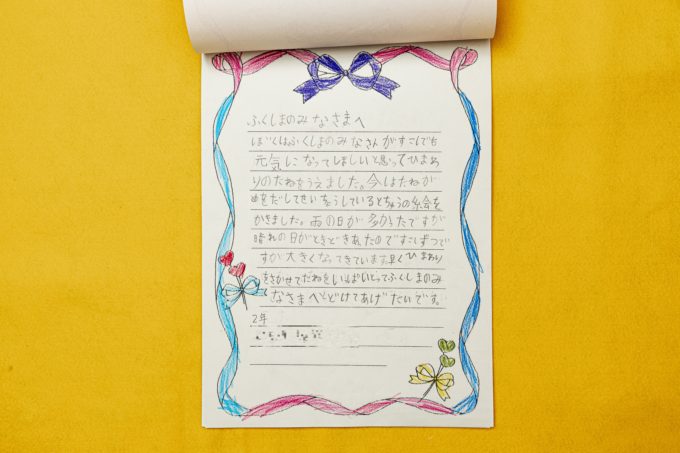 ふくしまのみなさまへ
ぼくはふくしまのみなさんがすこしでも
元気になってほしいと思ってひまわ
りのたねをうえました。今はたねが
めをだしてせいちょうしているとちゅうの絵を
かきました。雨の日が多かったですが
晴れの日がときどきあったのですこしずつで
すが大きくなってきています。早くひまわり
をさかせてたねをいっぱいとってふくしまのみ
なさまへとどけてあげたいです。
2年